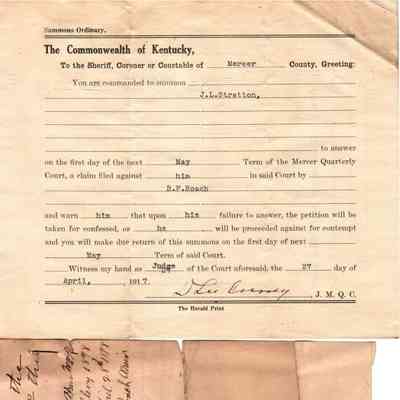 Summons Ordinary.
The Commonwealth of Kentucky,
To the Sheriff, Coroner or Constable of Mercer County, Greeting:
You are commanded to summon
J.L.Stratton,
to answer
on the first day of the next May Term of the Mercer Quarterly
Court, a claim filed against him in said Court by
B.F.Roach
and warn him that upon his failure to answer, the petition will be
taken for confessed, or he will be proceeded against for contempt
and you will make due return of this summons on the first day of next
May Term of said Court.
Witness my hand as Judge of the Court aforesaid, the 27 day of
April, 1917.
J. M. Q. C.
The Herald Print
the
the